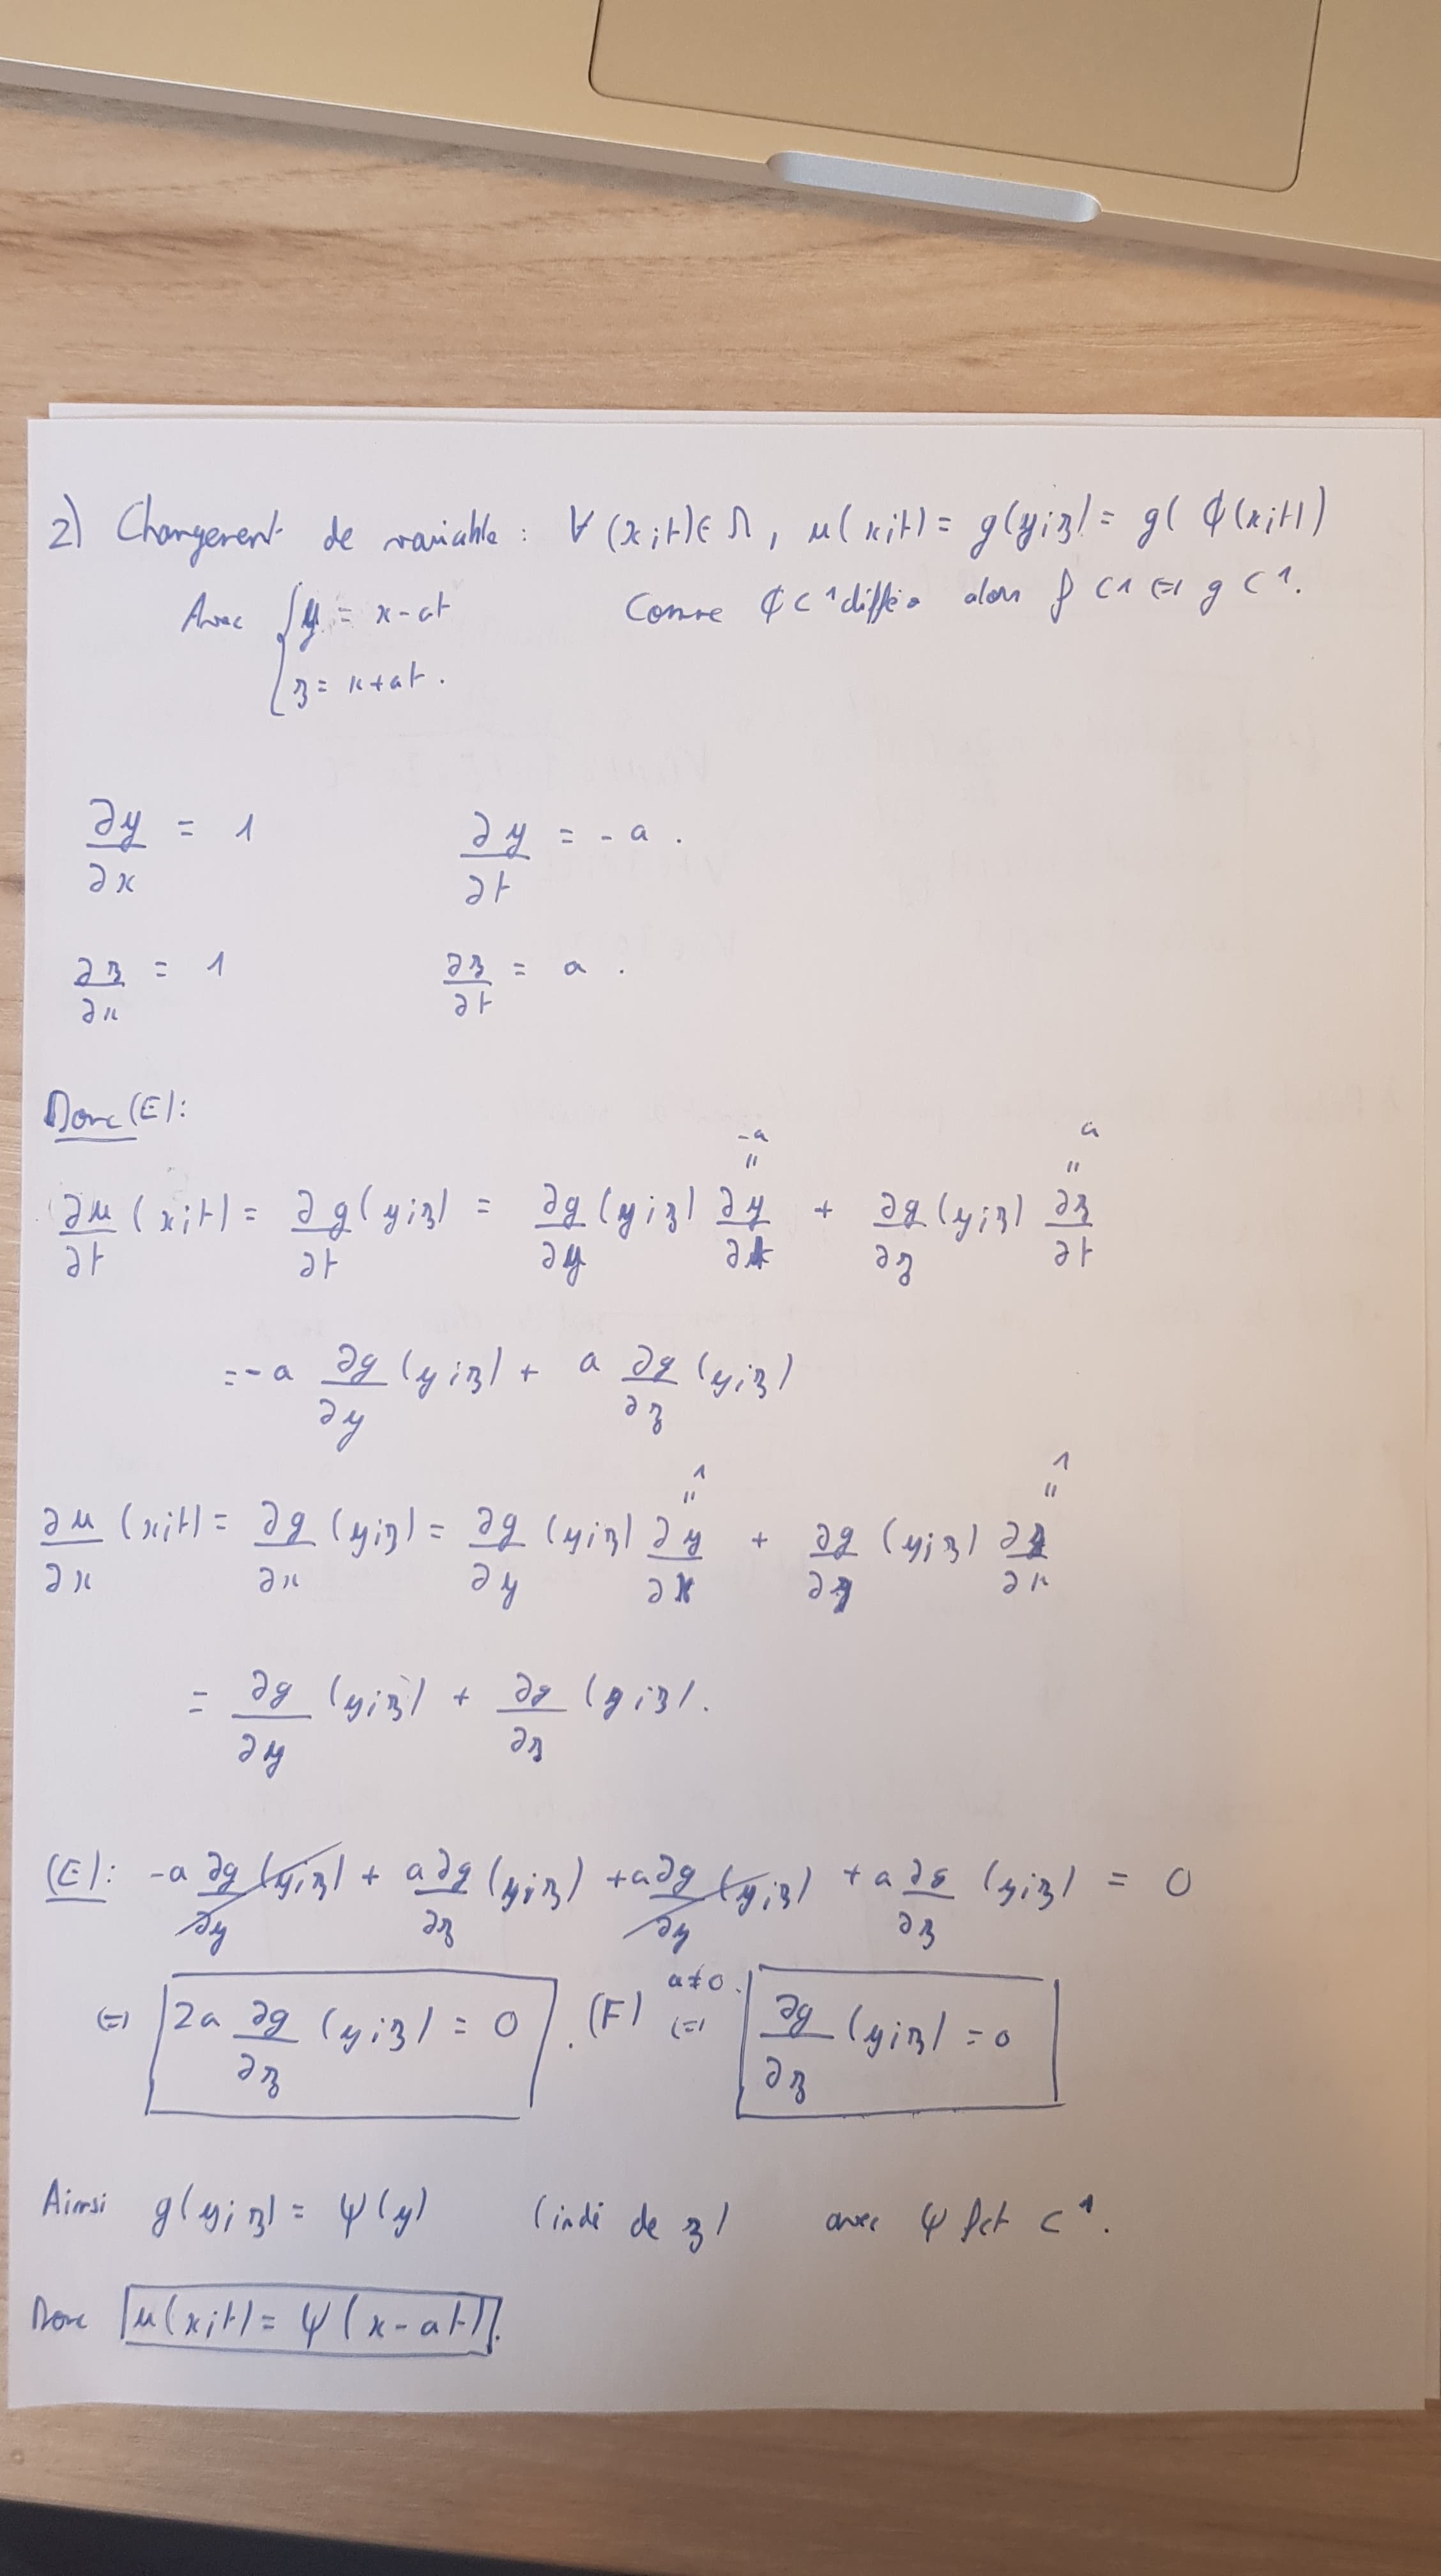 2) Changement de variable : ∀(x;t)∈Ω, u(x;t) = g(y;z) = g(ϕ(x;t))
Avec { y = x-at      Comme ϕ C¹ difféo alors f C1 ⇔ g C¹.
z = x+at.
∂y/∂x = 1      ∂y/∂t = -a.
∂z/∂x = 1      ∂z/∂t = a.
Donc (E):
-a      a
"      "
∂u/∂t (x;t) = ∂g/∂t (y;z) = ∂g/∂y (y;z) ∂y/∂t + ∂g/∂z (y;z) ∂z/∂t
= -a ∂g/∂y (y;z) + a ∂g/∂z (y;z)
1      1
"      "
∂u/∂x (x;t) = ∂g/∂x (y;z) = ∂g/∂y (y;z) ∂y/∂x + ∂g/∂z (y;z) ∂z/∂x
= ∂g/∂y (y;z) + ∂g/∂z (y;z).
(E): -a ∂g/∂y (y;z) + a ∂g/∂z (y;z) + a ∂g/∂y (y;z) + a ∂g/∂z (y;z) = 0
⇔ 2a ∂g/∂z (y;z) = 0 . (F) a≠0. ⇔ ∂g/∂z (y;z) = 0
Ainsi g(y;z) = ψ(y)   (indé de z)   avec ψ fct C¹.
Donc u(x;t) = ψ(x-at).